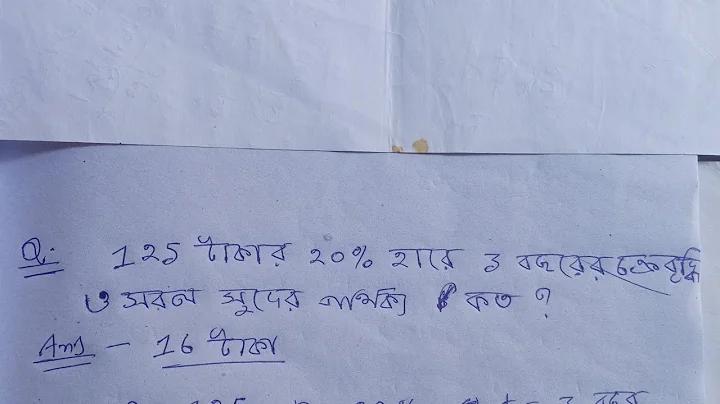 Q. 125 টাকার 20% হারে 3 বছরের চক্রবৃদ্ধি
ও সরল সুদের পার্থক্য কত ?
Ans - 16 টাকা